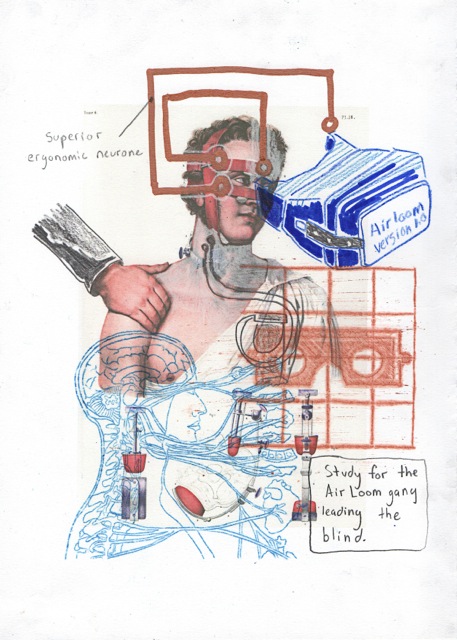 Superior
ergonomic neurone
Air loom
Version 1.0
Study for the
Air Loom gang
leading the
blind.